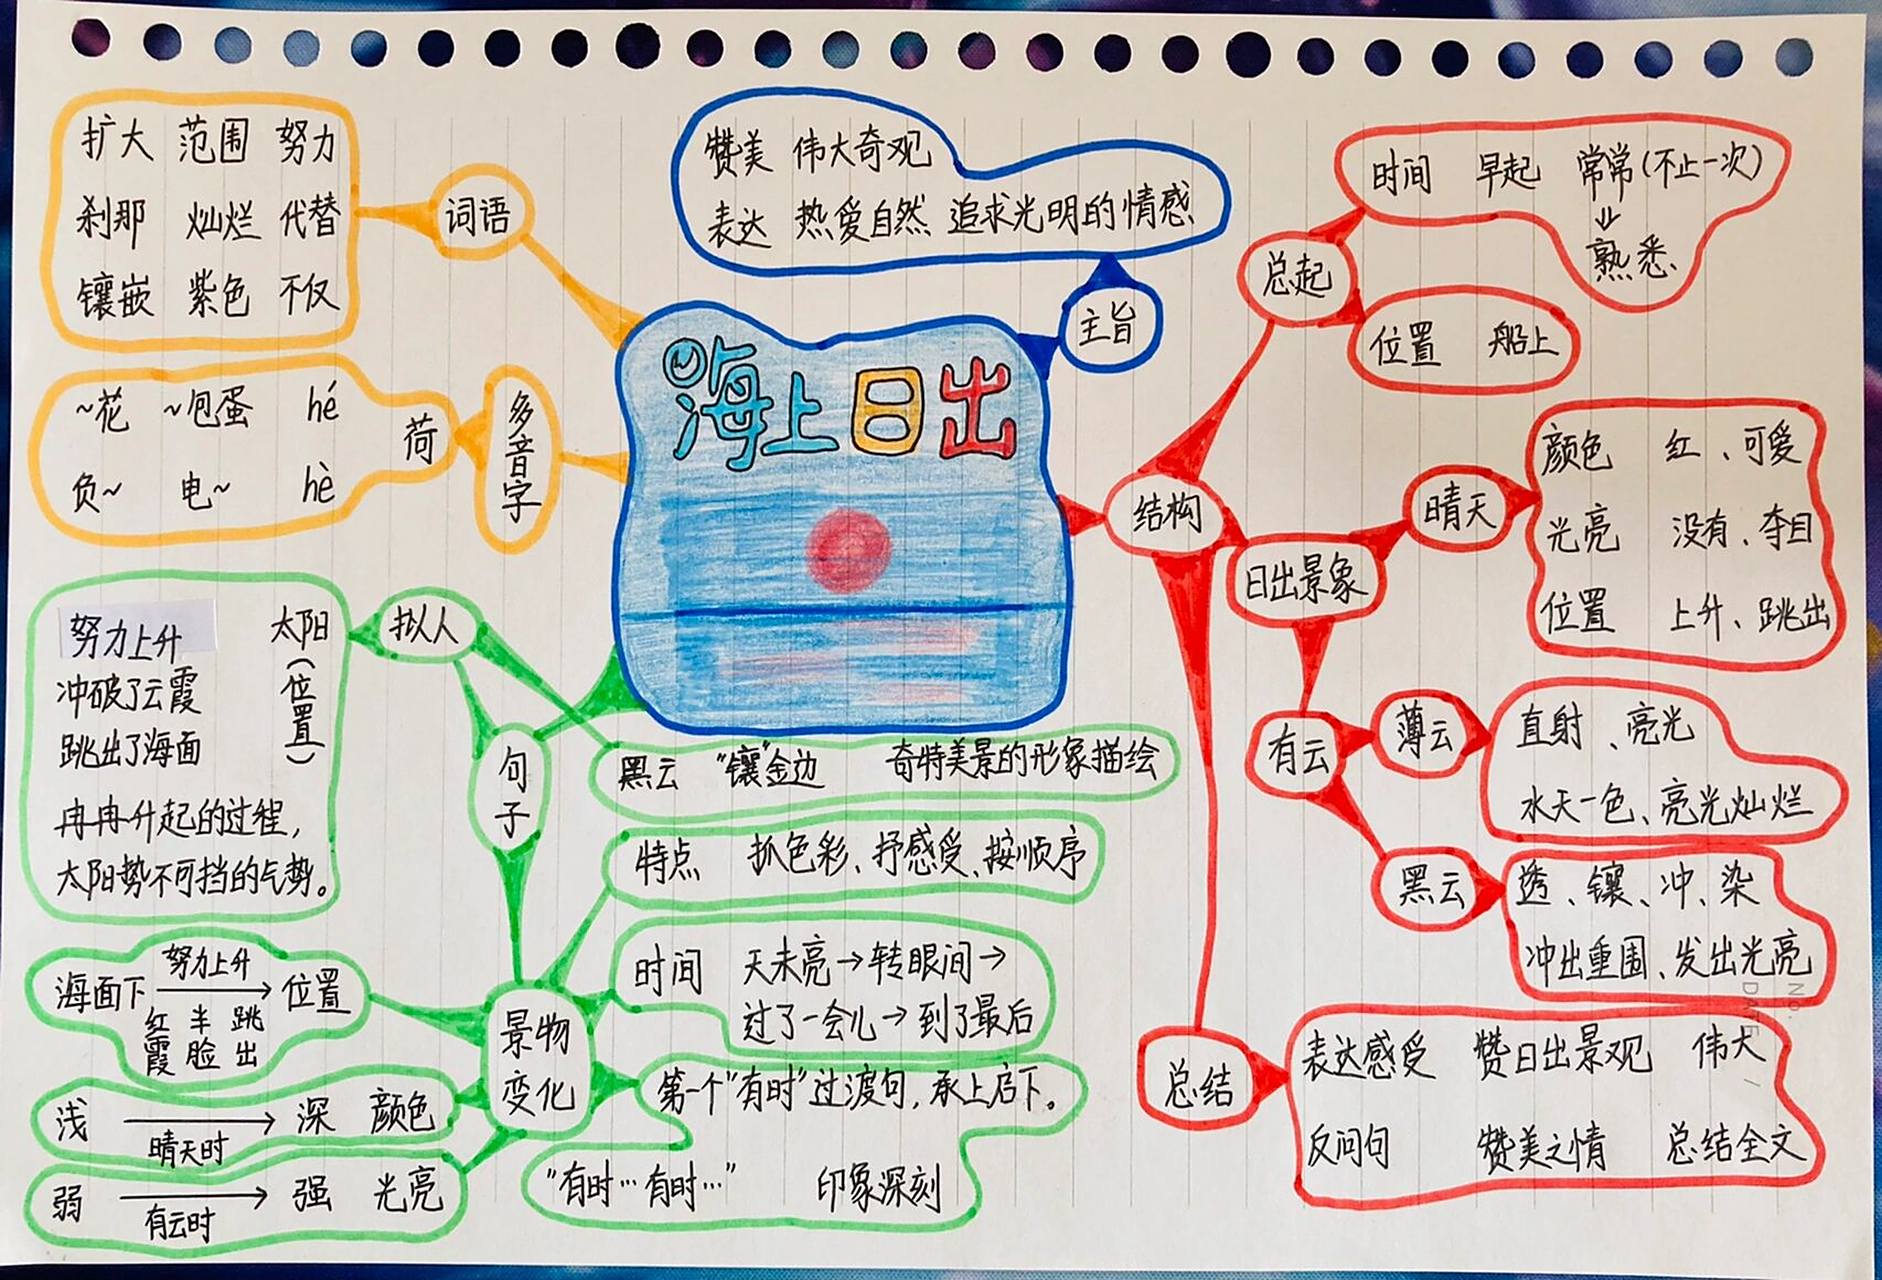 海上日出
词语
扩大 范围 努力
刹那 灿烂 代替
镶嵌 紫色 不仅
多音字
荷
~花 ~包蛋 hé
负~ 电~ hè
主旨
赞美 伟大奇观
表达 热爱自然 追求光明的情感
结构
总起
时间 早起 常常(不止一次)
⇓
熟悉
位置 船上
日出景象
晴天
颜色 红、可爱
光亮 没有、夺目
位置 上升、跳出
有云
薄云
直射、亮光
水天一色、亮光灿烂
黑云
透、镶、冲、染
冲出重围、发出光亮
总结
表达感受 赞日出景观 伟大
反问句 赞美之情 总结全文
句子
拟人
太阳(位置)
努力上升
冲破了云霞
跳出了海面
冉冉升起的过程,
太阳势不可挡的气势。
黑云 "镶"金边 奇特美景的形象描绘
景物
变化
特点 抓色彩、抒感受、按顺序
时间 天未亮→转眼间→
过了一会儿→到了最后
第一个"有时"过渡句,承上启下。
"有时…有时…" 印象深刻
努力上升
海面下 → 位置
红霞 半脸 跳出
浅 → 深 颜色
晴天时
弱 → 强 光亮
有云时
No.
DATE / /